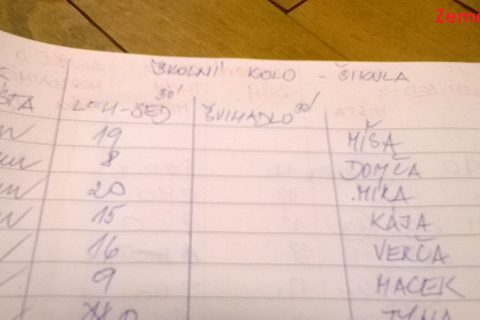 Zeme
ŠKOLNÍ KOLO - ŠIKULA
LEH-SED 30' ŠVIHADLO 30'
19 MÍŠA
8 DOMČA
20 MÍRA
15 KÁJA
16 VERČA
9 MACEK
TÝNA